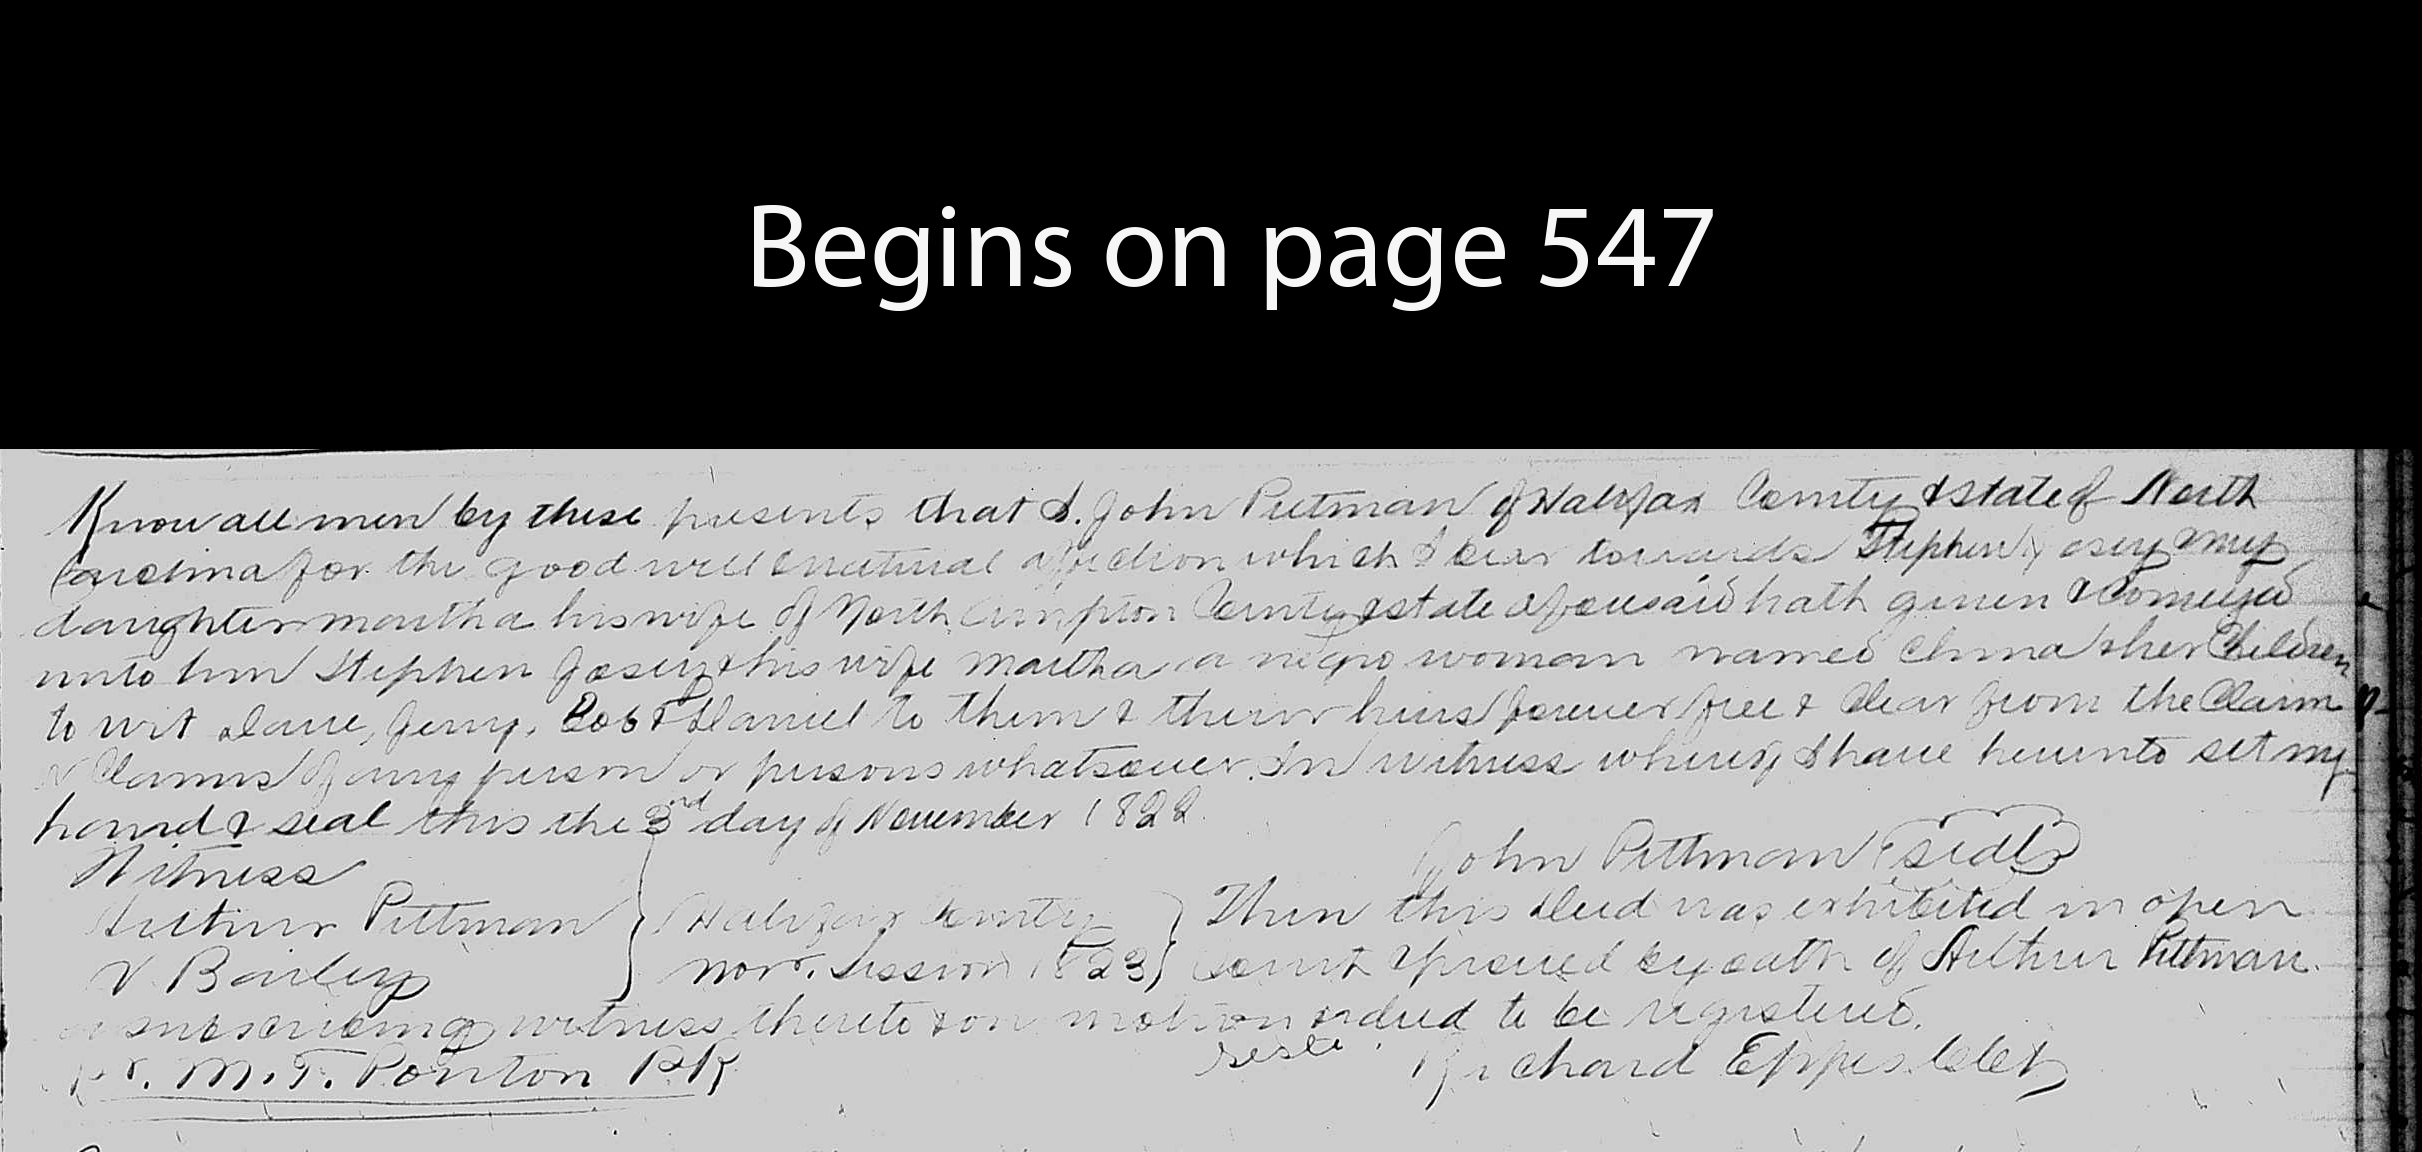 Begins on page 547
Know all men by these presents that I. John Pittman of Halifax County & state of North
Carolina for the good will & natural affection which I bear towards Stephen Josey & my
daughter martha his wife of North Campton County & state aforesaid hath given & Conveyed
unto him Stephen Josey & his wife martha a negro woman named China & her Children
to wit Dave, Jerry, Bob & Daniel to them & their heirs forever free & Clear from the Claim
or Claims of any person or persons whatsoever. In witness whereof I have hereunto set my
hand & seal this the 3rd day of November 1822
Witness
John Pittman (seal)
Arthur Pittman
V. Bailey
Halifax County
Novr. Session 1823
Then this deed was exhibited in open
Court & proved by oath of Arthur Pittman
a subscribing witness thereto & on motion ordred to be registered.
Teste. Richard Eppes. Clk
pr. M. T. Ponton PR